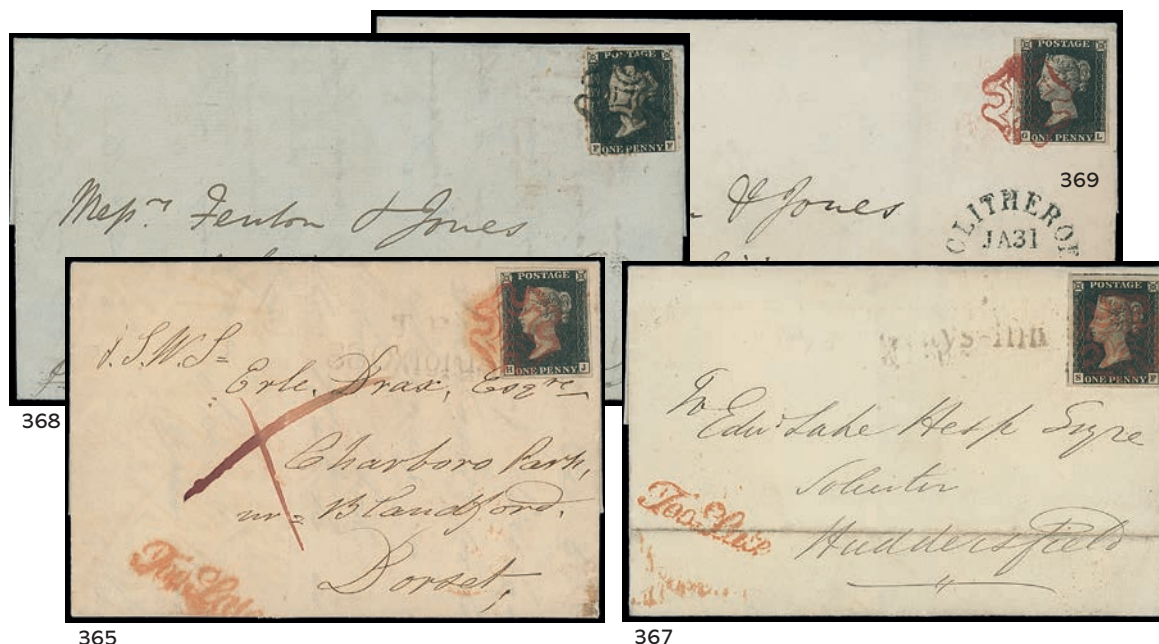 POSTAGE
F F
ONE PENNY
Messrs Fenton & Jones
368
POSTAGE
G L
ONE PENNY
& Jones
369
CLITHEROE
JA31
POSTAGE
H J
ONE PENNY
J.S.W.S=
Erle. Drax, Esqre
Charboro Park,
nr= Blandford.
Dorset,
Too Late
365
POSTAGE
S F
ONE PENNY
ays-Inn
To
Edwd Lake Hesp Esqre
Solicitor
Huddersfield
Too Late
367